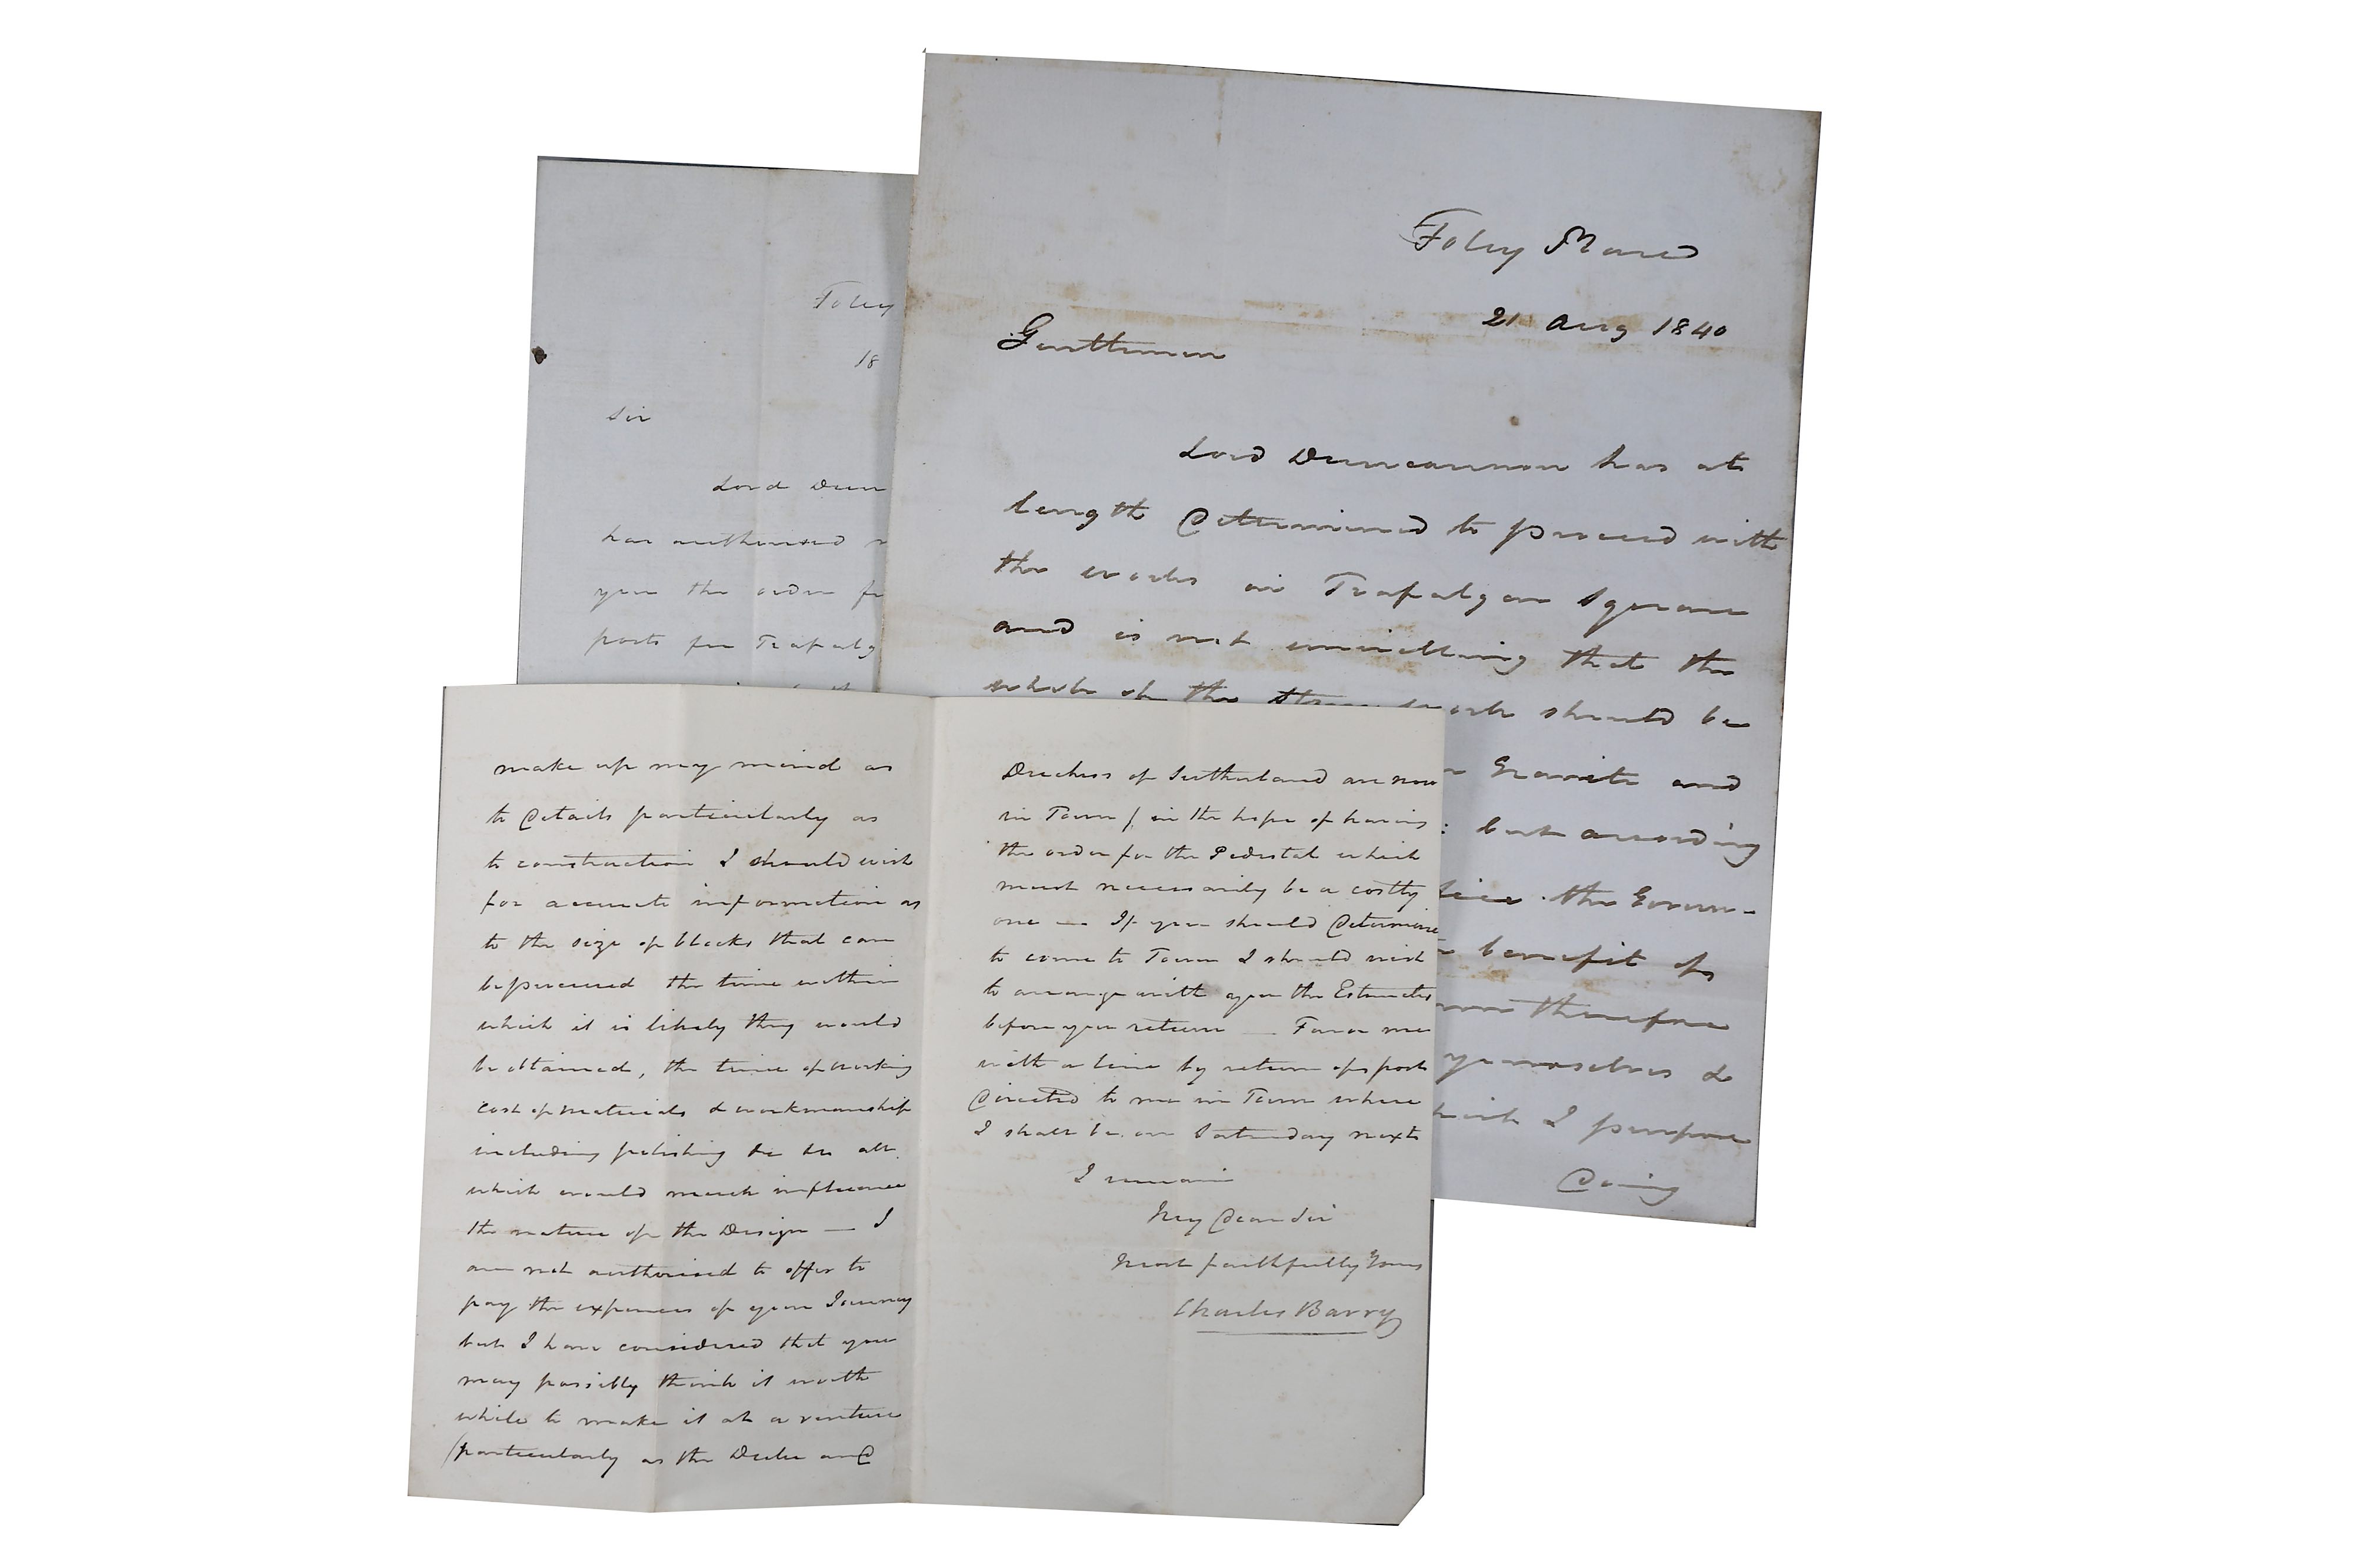 Foley Place
21 Aug 1840
Gentlemen
Lord Duncannon has at
length determined to proceed with
the works in Trafalgar Square
and is not unwilling that the
whole of the Stone work should be
Granite and
: but according
the Govern-
benefit of
therefore
yourselves &
I purpose
doing
Foley
18
Sir
Lord Dun
has authorised
you the order fo
posts for Trafalg
make up my mind as
to details particularly as
to construction I should wish
for accurate information as
to the size of blocks that can
be procured the time within
which it is likely they would
be obtained, the time of working
cost of materials & workmanship
including polishing &c &c all
which would much influence
the nature of the Design — I
am not authorised to offer to
pay the expenses of your Journey
but I have considered that you
may possibly think it worth
while to make it at a venture
(particularly as the Duke and
Duchess of Sutherland are now
in Town) in the hope of having
the order for the Pedestal which
must necessarily be a costly
one — If you should determine
to come to Town I should wish
to arrange with you the Estimates
before you return — Favor me
with a line by return of post
directed to me in Town where
I shall be on Saturday next
I remain
My dear Sir
Most faithfully Yours
Charles Barry